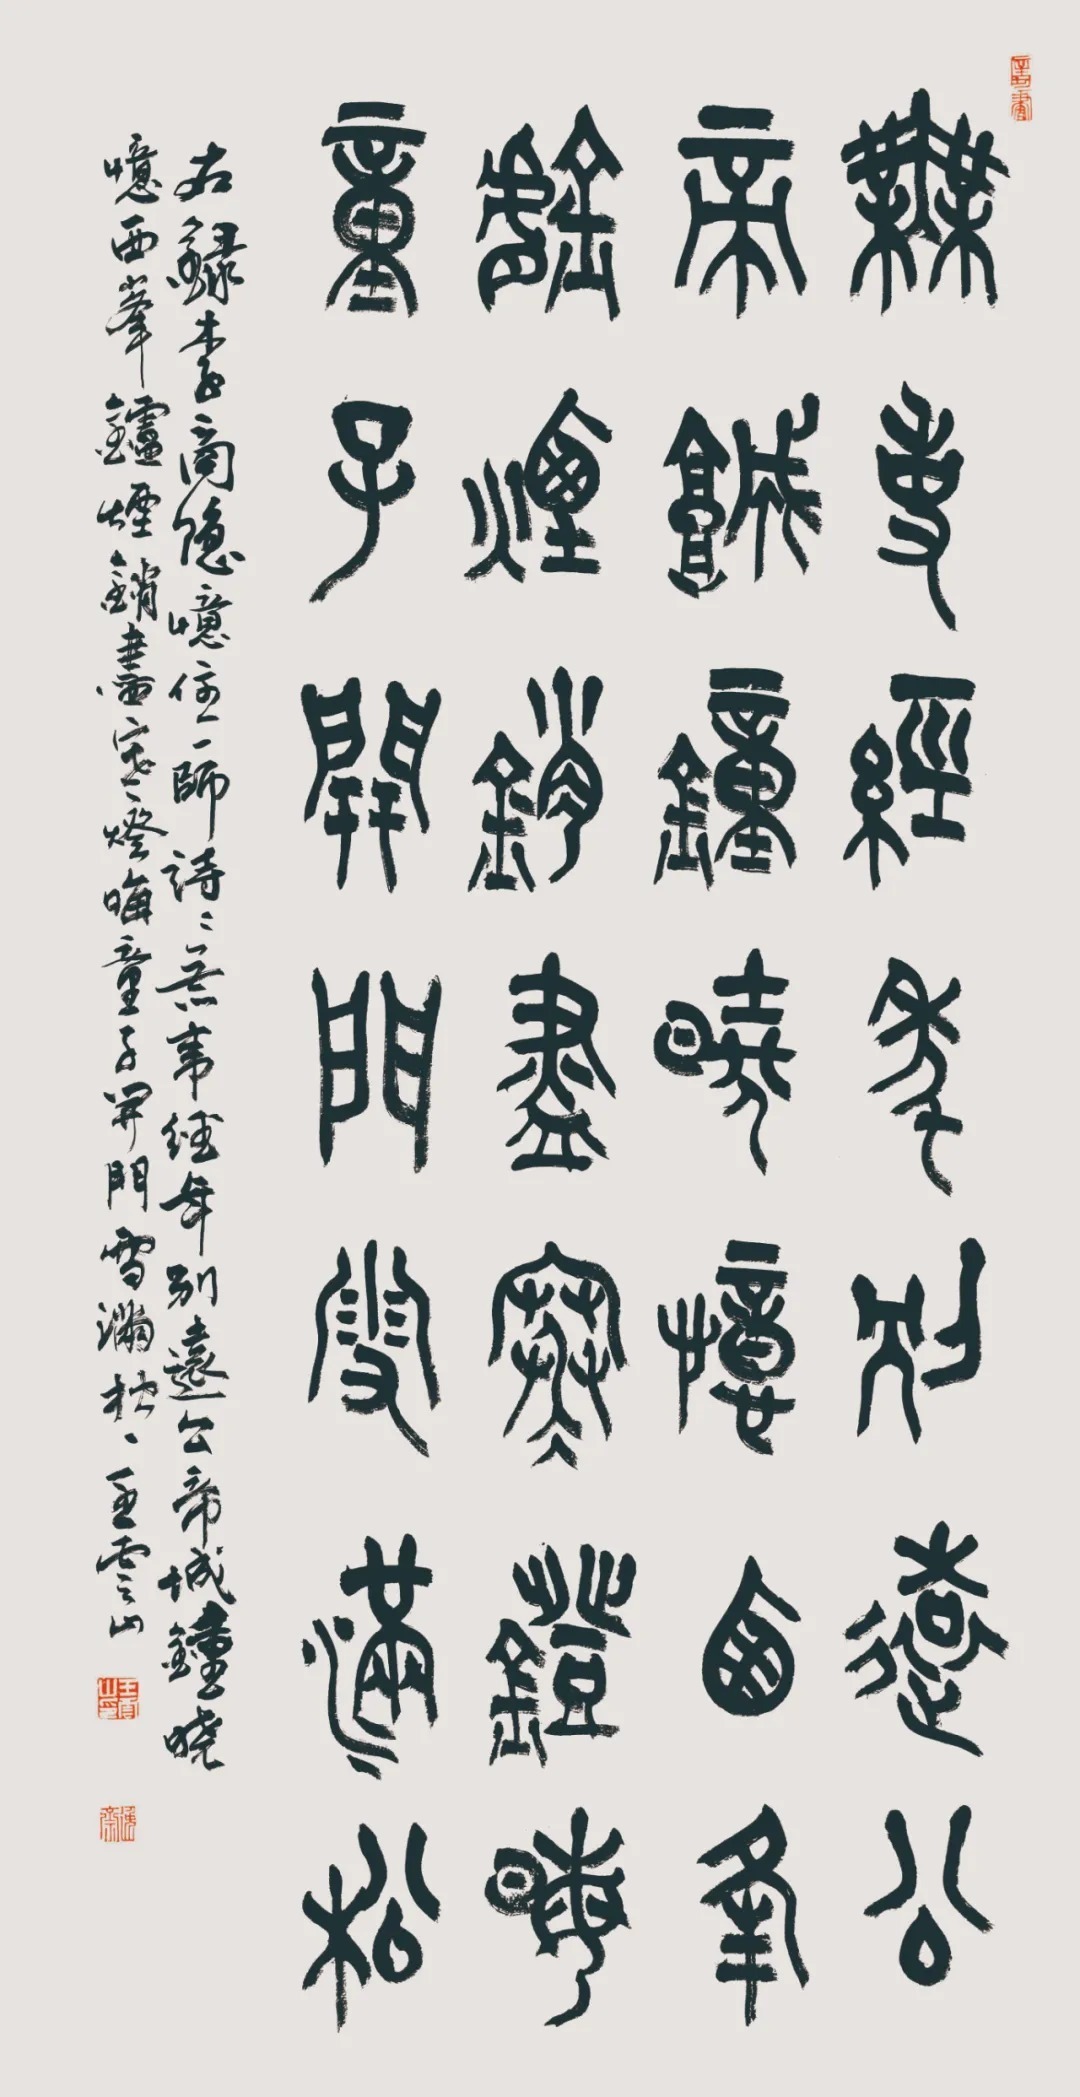 無事經年別遠公
帝城鐘曉憶西峯
鑪煙銷盡寒鐙晦
童子開門雪滿松
右錄李商隱憶住一師詩詩無事經年別遠公帝城鐘曉
憶西峯鑪煙銷盡寒寒燈晦童子開門雪滿松松王雲山